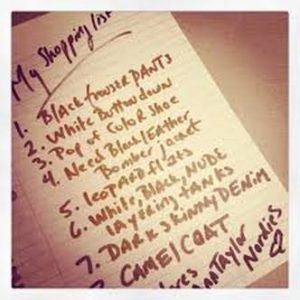 My Shopping list
1. BLACK trouser PANTS
2. White Buttondown
3. Pop of COLOR Shoe
4. Need Black LEATHER
Bomber Jacket
5. leopard flats
6. White, Black, NUDE
layering tanks
7. DARK skinny DENIM
CAMEL COAT
Nordies